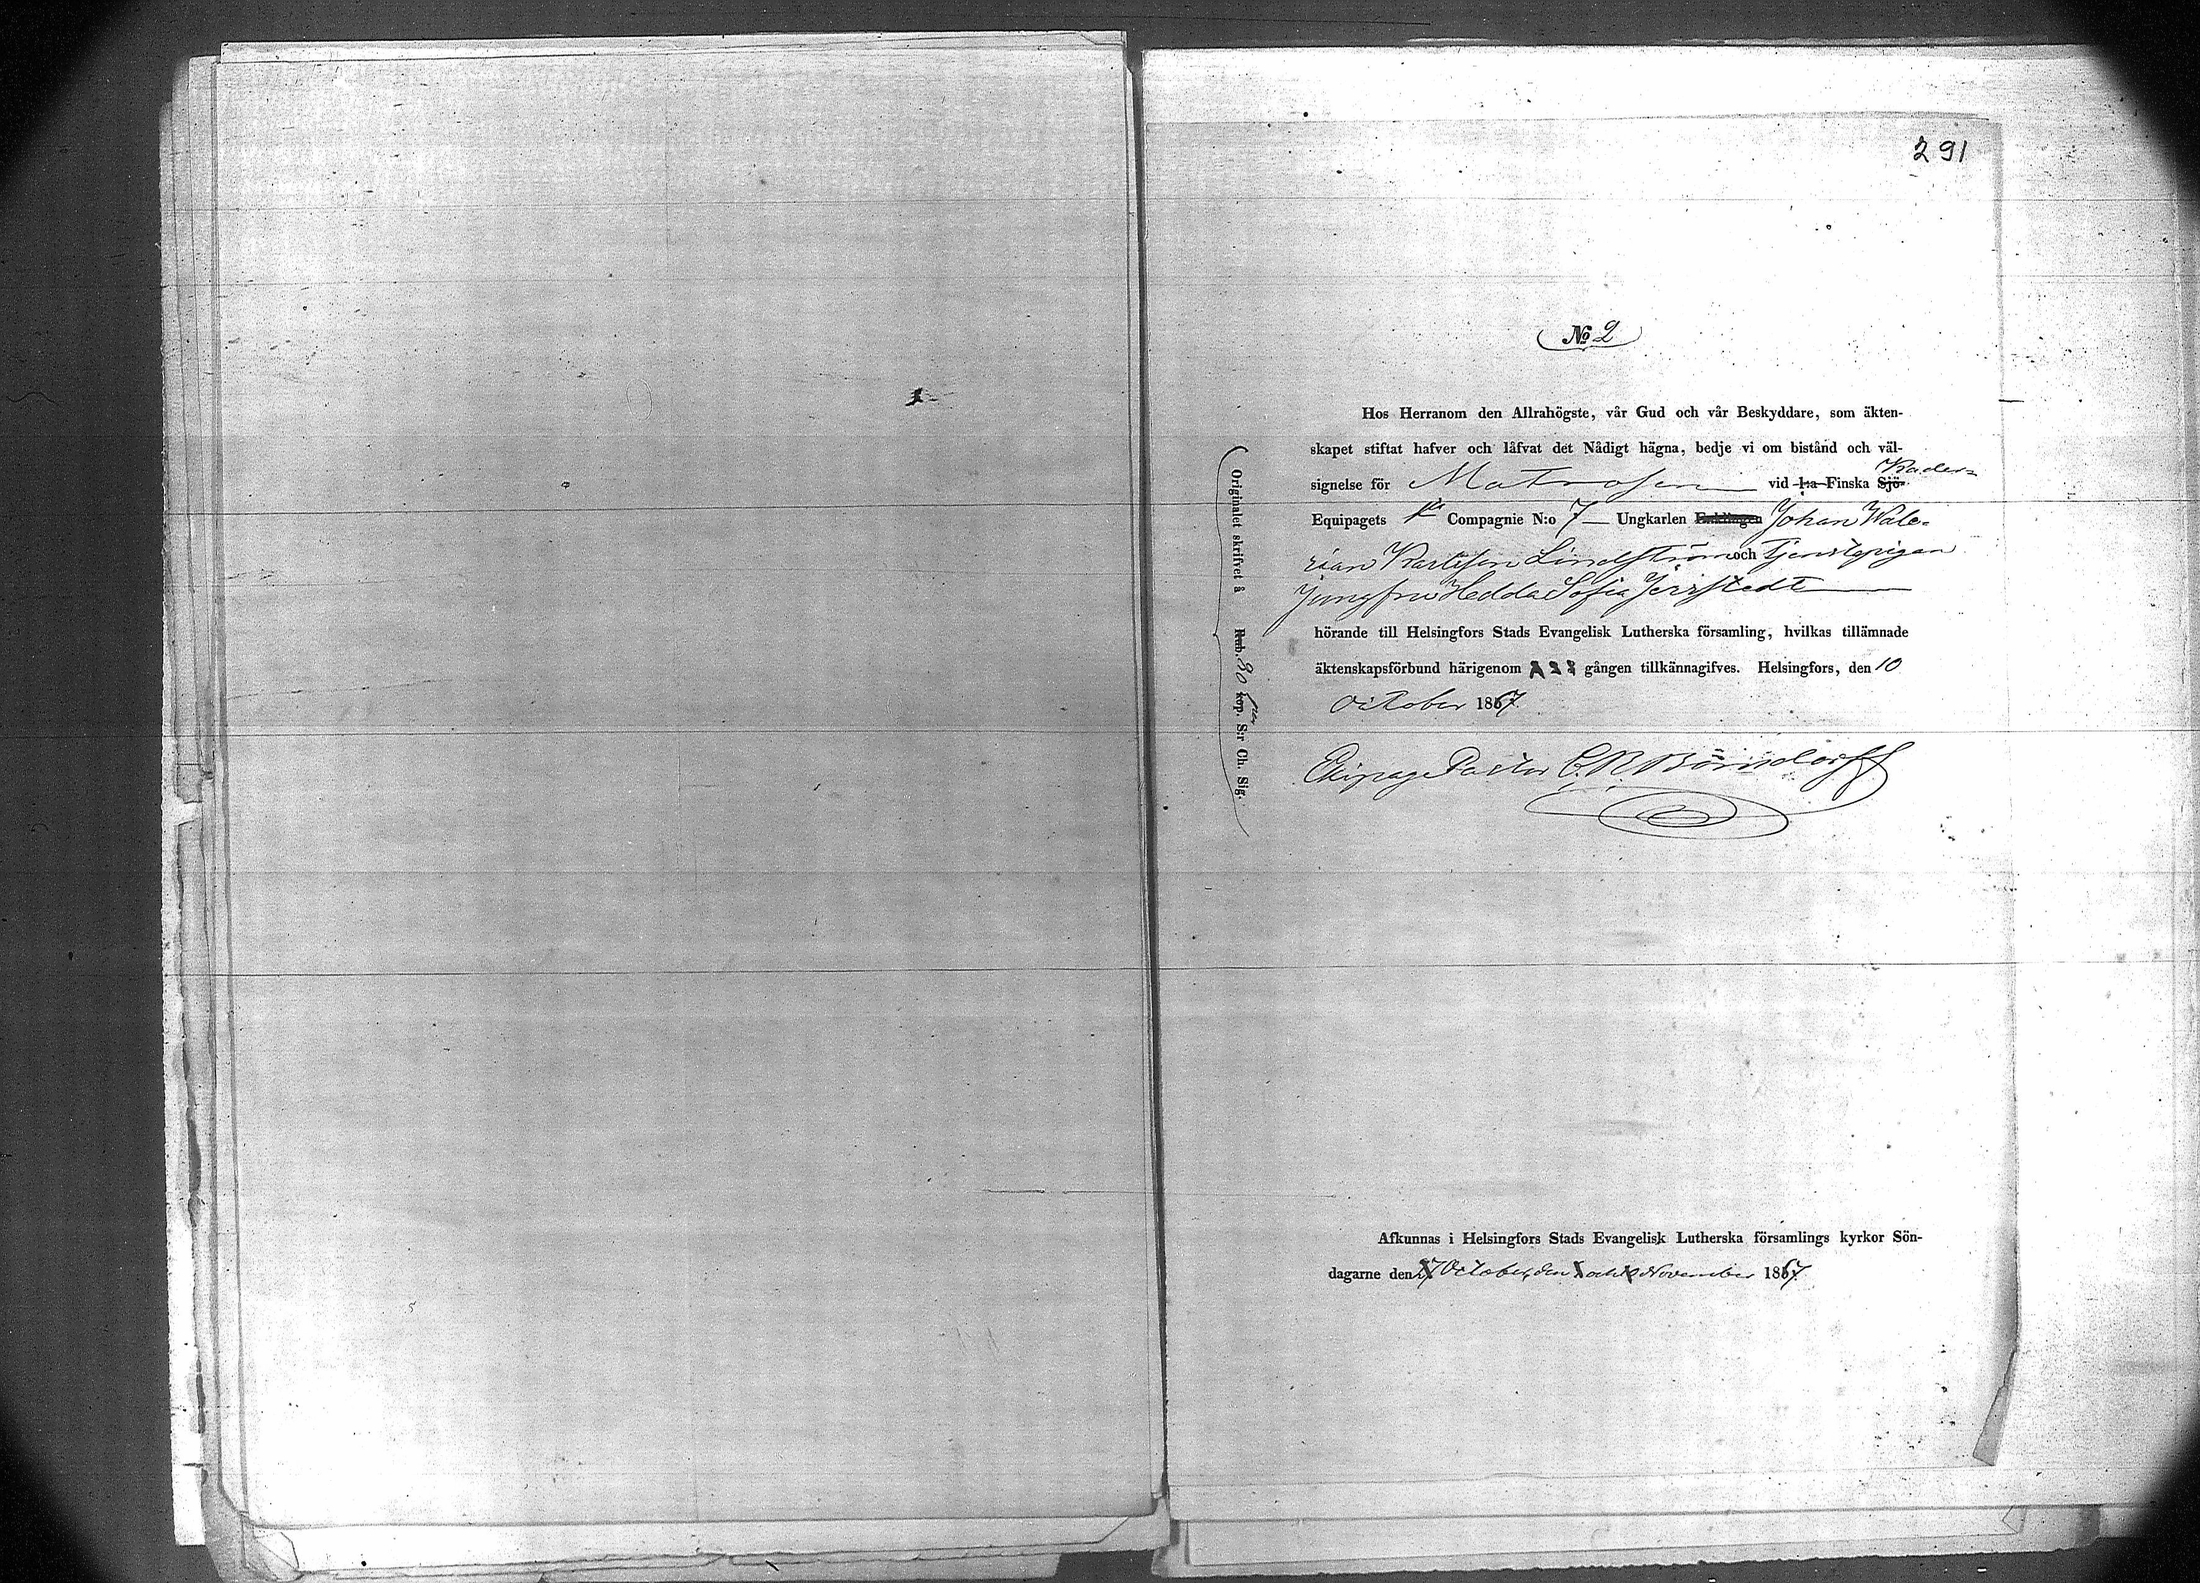 291
№ 2
Hos Herranom den Allrahögste, vår Gud och vår Beskyddare, som äkten-
skapet stiftat hafver och låfvat det Nådigt hägna, bedje vi om bistånd och väl-
signelse för Matrosen vid 1:a Finska Sjö-
Kader-
Equipagets 1sta Compagnie N:o 7 Ungkarlen Enklingen Johan Wale-
rian Karlsson Lindström och Tjenstepigan
Jungfru Hedda Sofia Jerstedt
hörande till Helsingfors Stads Evangelisk Lutherska församling, hvilkas tillämnade
äktenskapsförbund härigenom 1 2 3 gången tillkännagifves. Helsingfors, den 10
October 1867
Ekipage Pastor C. R. Börnsdorff
Originalet skrifvet å Rub. 80 kop. S:r Ch. Sig.
Afkunnas i Helsingfors Stads Evangelisk Lutherska församlings kyrkor Sön-
dagarne den October, den och November 1867